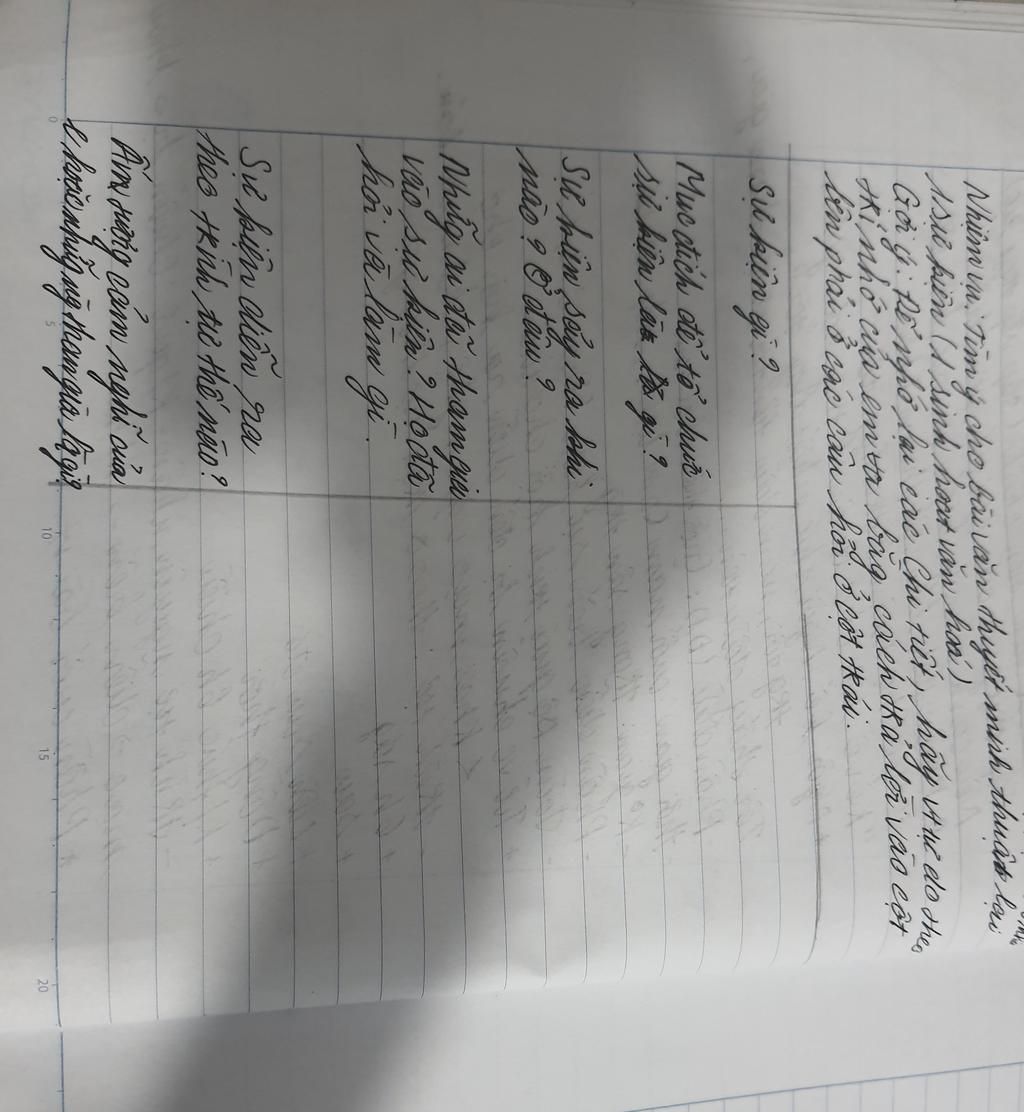 Nhiệm vụ: Tìm ý cho bài văn thuyết minh thuật lại
1 sự kiện (1 sinh hoạt văn hoá)
Gợi ý: Để nhớ lại các chi tiết, hãy viết tự do theo
trí nhớ của em và bằng cách trả lời vào cột
bên phải ở các câu hỏi ở cột trái.
Sự kiện gì?
Mục đích để tổ chức
sự kiện là gì?
Sự kiện sảy ra khi
nào? Ở đâu?
Những ai đã tham gia
vào sự kiện? Họ đã
nói và làm gì.
Sự kiện diễn ra
theo trình tự thế nào?
Ấn tượng cảm nghĩ của
e hoặc những ng tham gia là gì
0
5
10
15
20